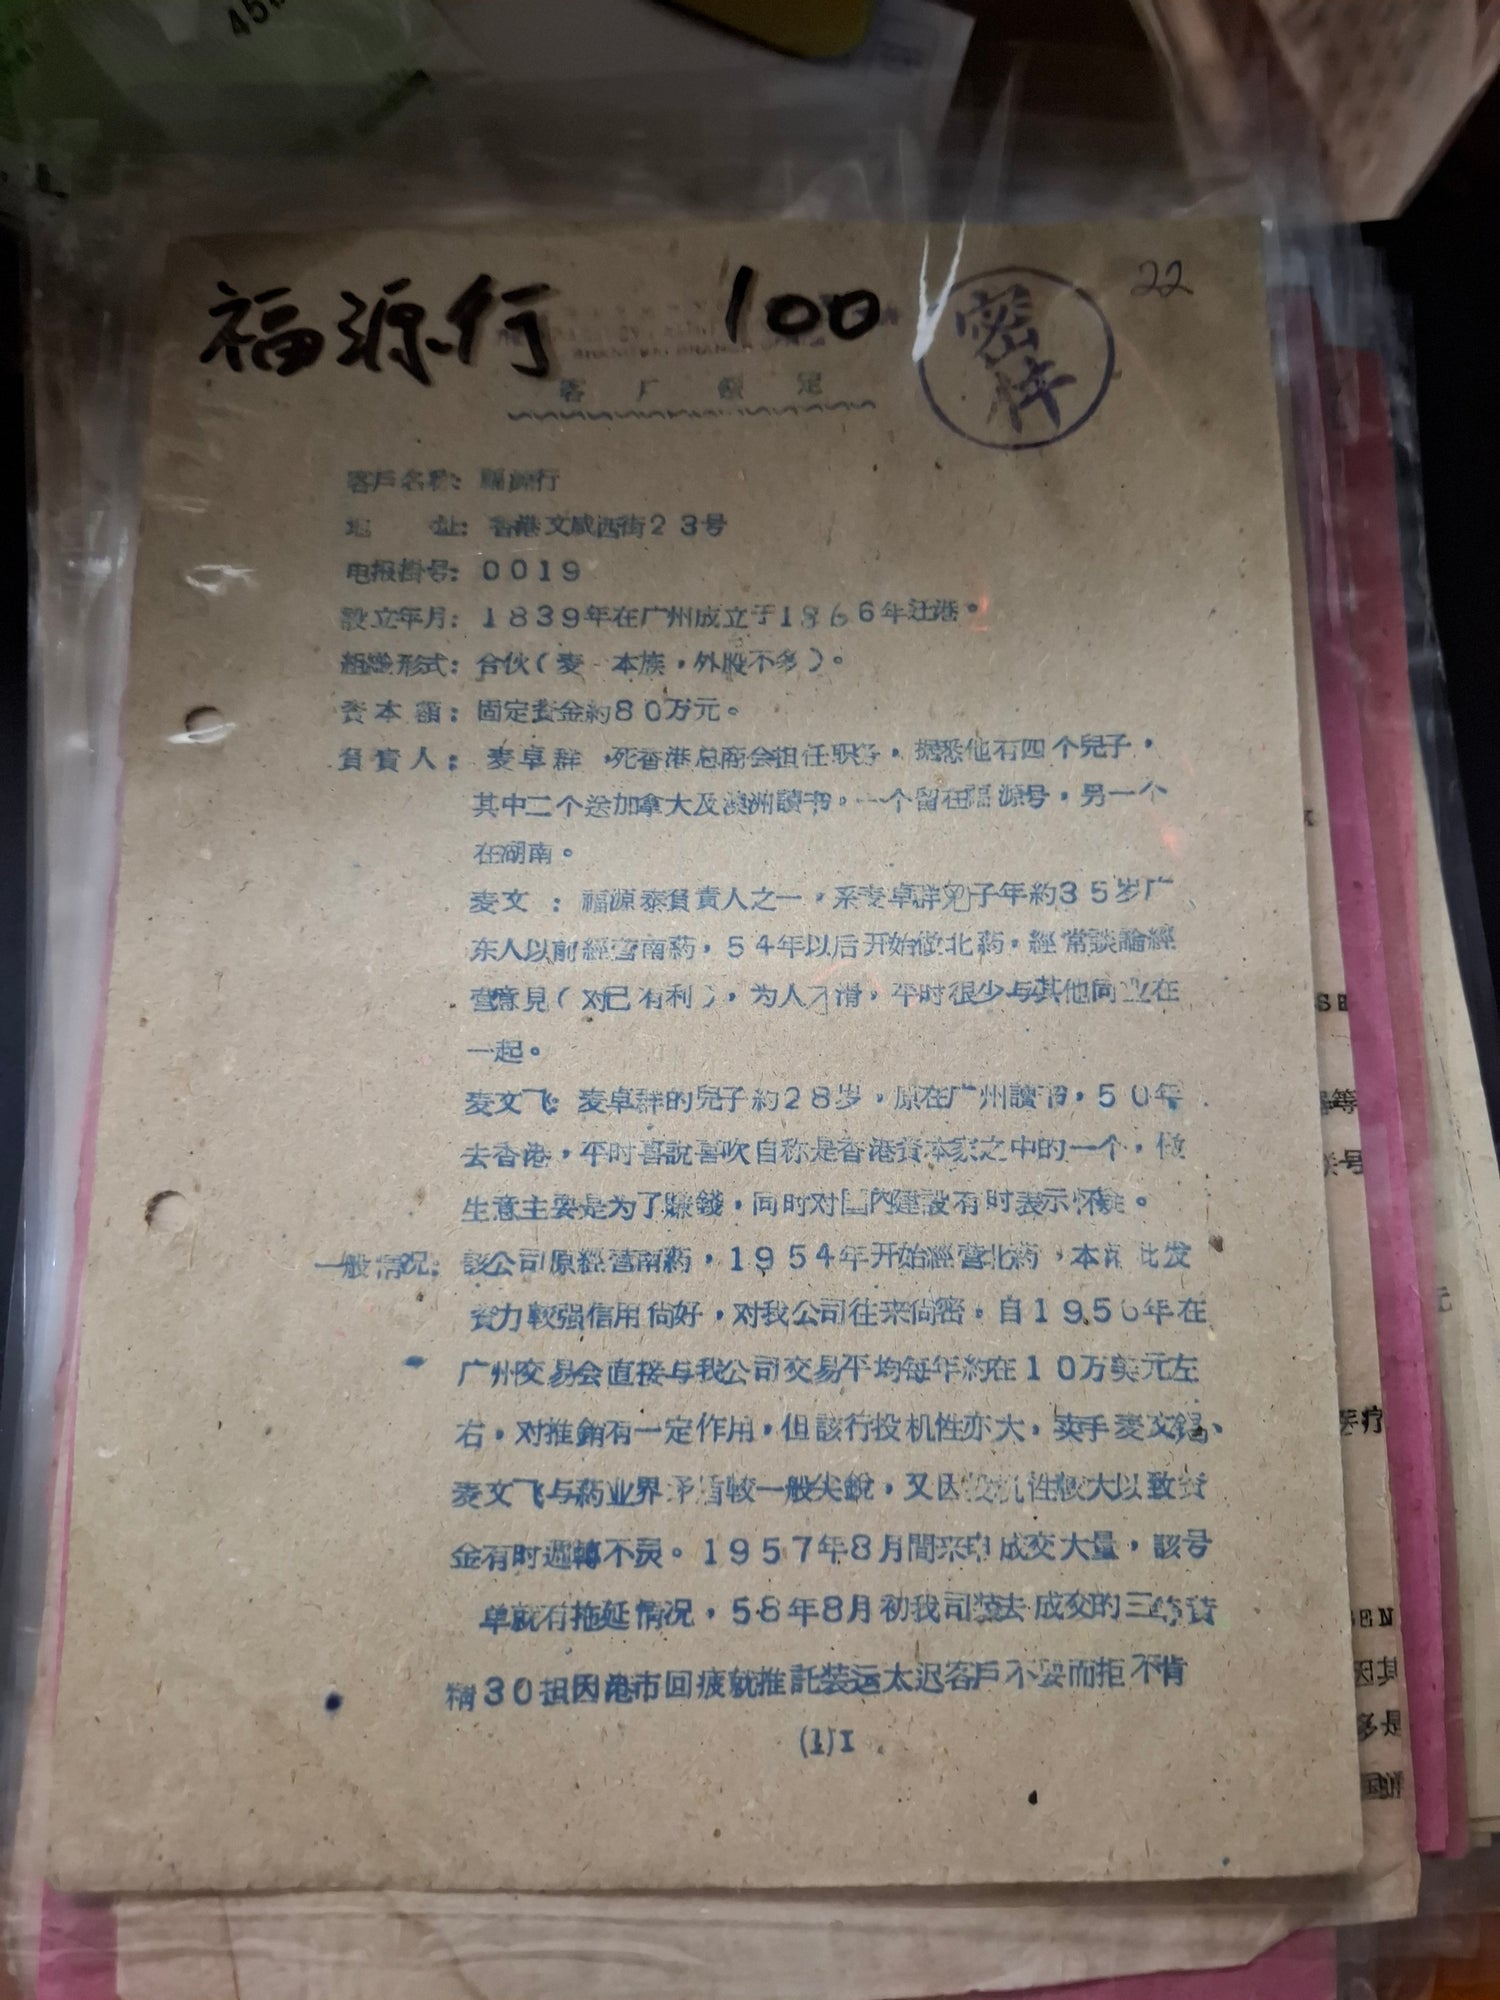 福源行 100 密件 22
客户名称：福源行
地 址：香港文咸西街23号
电报掛号：0019
設立年月：1839年在广州成立于1866年迁港。
組織形式：合伙（麦 本族，外股不多）。
資本額：固定資金約80万元。
負責人：麦卓群 ，死香港总商会担任职务，据悉他有四个兒子，
其中二个送加拿大及澳洲讀书。一个留在福源号，另一个
在湖南。
麦文 ：福源泰負責人之一，系麦卓群 子年約35岁广
东人以前經营南药，54年以后开始做北药，經常談論經
营意見（对己有利），为人 滑，平时很少与其他同业在
一起。
麦文飞：麦卓群的兒子約28岁，原在广州讀书，50年
去香港，平时喜說喜吹自称是香港資本家之中的一个，做
生意主要是为了賺錢，同时对国內建設有时表示怀疑。
一般情况：該公司原經营南药，1954年开始經营北药，本 批发
資力較强信用尚好，对我公司往来尚密，自1956年在
广州交易会直接与我公司交易平均每年約在10万美元左
右，对推銷有一定作用，但該行投机性亦大，卖手麦文錫、
麦文飞与药业界矛盾較一般尖銳，又因投机性較大以致資
金有时週轉不灵。1957年8月間来申成交大量，該号
单就有拖延情况，58年8月初我司装去成交的三 黄
精30担因港市回疲就推託装运太迟客戶不要而拒不肯
(1)I
号
元
医疗
因其
多是